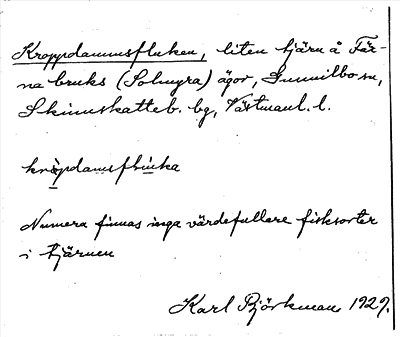 Kroppdammsfluken, liten tjärn å Fär-
na bruks (Solmyra) ägor, Gunnilbo sn,
Skinnskatteb. bg, Västmanl. l.
kròpdamsfluka
Numera finnas inga värdefullare fisksorter
i tjärnen
Karl Björkman 1929.